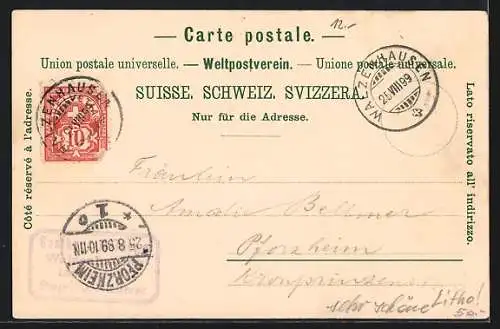 12.-
— Carte postale. —
Union postale universelle. — Weltpostverein. — Unione postale universale.
SUISSE. SCHWEIZ. SVIZZERA.
Nur für die Adresse.
Côté réservé à l'adresse.
Lato riservato all' indirizzo.
WALZENHAUSEN
25.VIII.99
WALZENHAUSEN
10
Fräulein
Amalie Bellmer
Pforzheim
Kronprinzenstr
PFORZHEIM.
25.8.99.10-11N.
* 1 c
sehr schöne Litho!
50.-